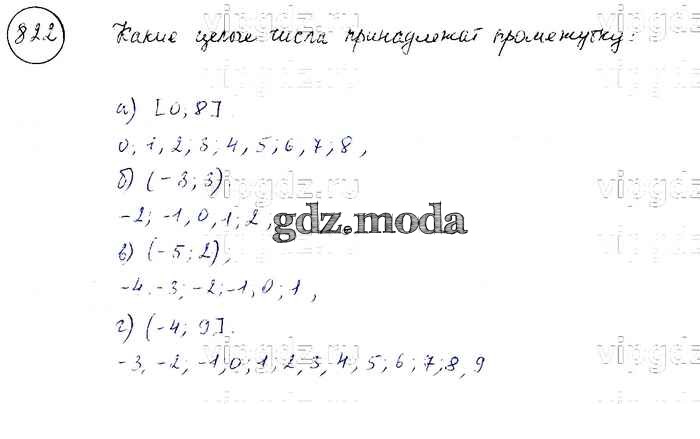 822 Какие целые числа принадлежат промежутку:
а) [0; 8].
0; 1, 2; 3; 4, 5; 6, 7; 8,
б) (-3; 3).
-2; -1, 0, 1; 2,
gdz.moda
в) (-5; 2);
-4. -3; -2; -1, 0; 1,
г) (-4; 9].
-3, -2, -1, 0; 1; 2, 3, 4, 5; 6; 7; 8, 9
vipgdz.ru
vipgdz.ru
vipgdz.ru
vipgdz.ru
vipgdz.ru
vipgdz.ru